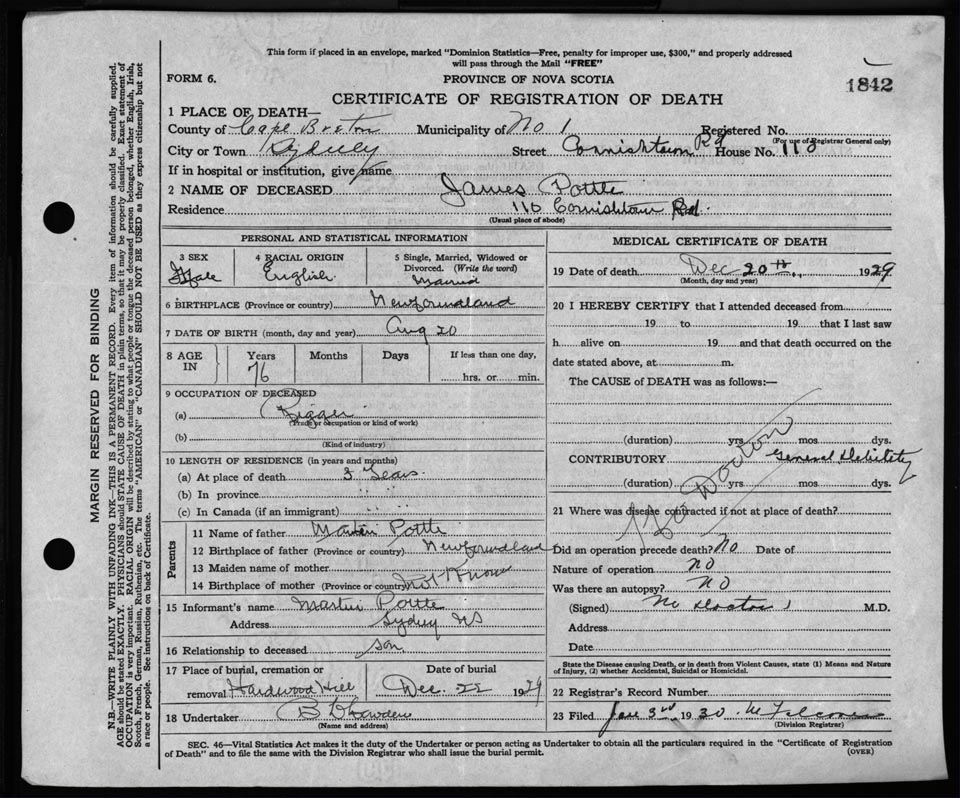 This form if placed in an envelope, marked "Dominion Statistics—Free, penalty for improper use, $300," and properly addressed
will pass through the Mail "FREE"
FORM 6.
PROVINCE OF NOVA SCOTIA
1842
CERTIFICATE OF REGISTRATION OF DEATH
1 PLACE OF DEATH—
County of Cape Breton Municipality of No 1 Registered No.
(For use of Registrar General only)
City or Town Sydney Street Cornishtown Rd House No. 110
If in hospital or institution, give name
2 NAME OF DECEASED James Pottle
Residence 110 Cornishtown Rd.
(Usual place of abode)
PERSONAL AND STATISTICAL INFORMATION
3 SEX Male
4 RACIAL ORIGIN English
5 Single, Married, Widowed or Divorced. (Write the word) Married
6 BIRTHPLACE (Province or country) Newfoundland
7 DATE OF BIRTH (month, day and year) Aug 20
8 AGE IN Years 76 Months Days If less than one day, hrs. or min.
9 OCCUPATION OF DECEASED
(a) Rigger
(Trade or occupation or kind of work)
(b)
(Kind of industry)
10 LENGTH OF RESIDENCE (in years and months)
(a) At place of death 3 Years
(b) In province " "
(c) In Canada (if an immigrant) " "
Parents
11 Name of father Martin Pottle
12 Birthplace of father (Province or country) Newfoundland
13 Maiden name of mother
14 Birthplace of mother (Province or country) Not Know
15 Informant's name Martin Pottle
Address Sydney NS
16 Relationship to deceased son
17 Place of burial, cremation or removal Hardwood Hill
Date of burial Dec. 22 1929
18 Undertaker B
(Name and address)
MEDICAL CERTIFICATE OF DEATH
19 Date of death Dec 20th, 1929
(Month, day and year)
20 I HEREBY CERTIFY that I attended deceased from
19 to 19 that I last saw
h alive on 19 and that death occurred on the
date stated above, at m.
The CAUSE of DEATH was as follows:—
No Doctor
(duration) yrs. mos. dys.
CONTRIBUTORY General Debility
(duration) yrs. mos. dys.
21 Where was disease contracted if not at place of death?
Did an operation precede death? No Date of
Nature of operation No
Was there an autopsy? No
(Signed) No Doctor M.D.
Address
Date
State the Disease causing Death, or in death from Violent Causes, state (1) Means and Nature
of Injury, (2) whether Accidental, Suicidal or Homicidal.
22 Registrar's Record Number
23 Filed Jan 3rd 1930
(Division Registrar)
SEC. 46—Vital Statistics Act makes it the duty of the Undertaker or person acting as Undertaker to obtain all the particulars required in the "Certificate of Registration
of Death" and to file the same with the Division Registrar who shall issue the burial permit.
(OVER)
MARGIN RESERVED FOR BINDING
N.B.—WRITE PLAINLY WITH UNFADING INK—THIS IS A PERMANENT RECORD. Every item of information should be carefully supplied.
AGE should be stated EXACTLY. PHYSICIANS should STATE CAUSE OF DEATH in plain terms, so that it may be properly classified. Exact statement of
OCCUPATION is very important. RACIAL ORIGIN will be described by stating to what people or tongue the deceased person belonged, whether English, Irish,
Scotch, French, German, Russian, Ruthenian, etc. The terms "AMERICAN" or "CANADIAN" SHOULD NOT BE USED as they express citizenship but not
a race or people. See instructions on back of Certificate.